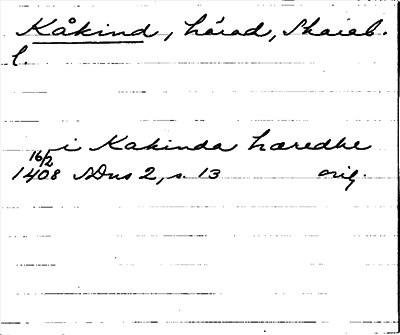 Kåkind, härad, Skarab.
l.
i Kakinda hæredhe
16/2
1408 SDns 2, s. 13 orig.